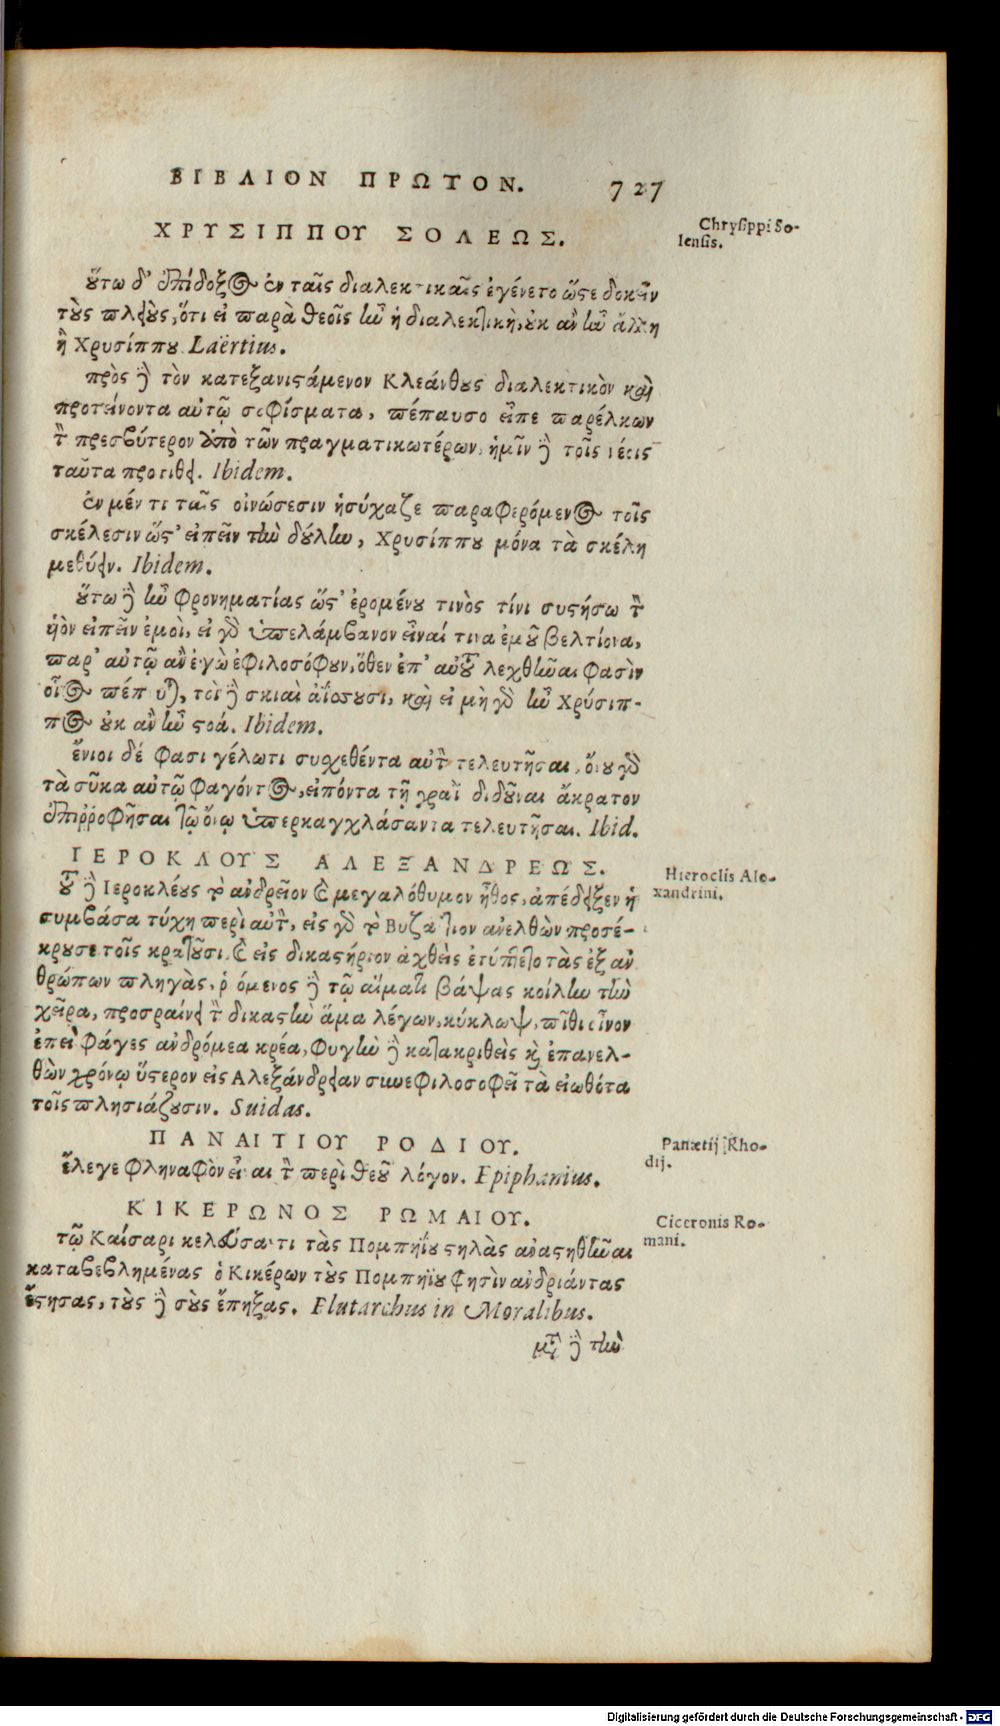 ΒΙΒΛΙΟΝ ΠΡΩΤΟΝ. 727
ΧΡΥΣΙΠΠΟΥ ΣΟΛΕΩΣ.
Chrysippi So-
lensis.
οὕτω δ' ἐπίδοξος ἐν ταῖς διαλεκτικαῖς ἐγένετο ὥστε δοκεῖν
τοὺς πλείους, ὅτι εἰ παρὰ θεοῖς ἦν ἡ διαλεκτικὴ, οὐκ ἂν ἦν ἄλλη
ἢ Χρυσίππου. Laërtius.
πρὸς δὲ τὸν κατεξανιστάμενον Κλεάνθους διαλεκτικὸν καὶ
προτείνοντα αὐτῷ σοφίσματα, πέπαυσο εἶπε παρέλκων
τὸν πρεσβύτερον ἀπὸ τῶν πραγματικωτέρων, ἡμῖν δὲ τοῖς νέοις
ταῦτα προτίθει. Ibidem.
ἐν μέν τι ταῖς οἰνώσεσιν ἡσύχαζε παραφερόμενος τοῖς
σκέλεσιν ὥστ' εἰπεῖν τὴν δούλην, Χρυσίππου μόνα τὰ σκέλη
μεθύειν. Ibidem.
οὕτω δὲ ἦν φρονηματίας ὥστ' ἐρομένου τινὸς τίνι συστήσω τὸν
ὑιὸν εἰπεῖν ἐμοὶ, εἰ γὰρ ὑπελάμβανον εἶναί τινα ἐμοῦ βελτίονα,
παρ' αὐτῷ ἂν ἐγὼ ἐφιλοσόφουν, ὅθεν ἐπ' αὐτοῦ λεχθῆναι φασὶν
οἷος πέπνυται, τοὶ δὲ σκιαὶ ἀΐσσουσι, καὶ εἰ μὴ γὰρ ἦν Χρύσιπ-
πος οὐκ ἂν ἦν στοά. Ibidem.
ἔνιοι δέ φασι γέλωτι συσχεθέντα αὐτὸν τελευτῆσαι, ὄνου γὰρ
τὰ σῦκα αὐτῷ φαγόντος, εἰπόντα τῇ γραῒ διδοῦναι ἄκρατον
ἐπιῤῥοφῆσαι τῷ ὄνῳ ὑπερκαγχλάσαντα τελευτῆσαι. Ibid.
ΙΕΡΟΚΛΟΥΣ ΑΛΕΞΑΝΔΡΕΩΣ.
Hieroclis Ale-
xandrini.
τοῦ δὲ Ιεροκλέους τὸ ἀνδρεῖον καὶ μεγαλόθυμον ἦθος, ἀπέδειξεν ἡ
συμβάσα τύχη περὶ αὐτὸν, εἰς γὰρ τὸ Βυζάντιον ἀνελθὼν προσέ-
κρουσε τοῖς κρατοῦσι, καὶ εἰς δικαστήριον ἀχθεὶς ἐτύπτετο τὰς ἐξ ἀν
θρώπων πληγὰς, ῥεόμενος δὲ τῷ αἵματι βάψας κοίλην τὴν
χεῖρα, προσραίνει τὸν δικαστὴν ἅμα λέγων, κύκλωψ, πῖθι οἶνον
ἐπεὶ φάγες ἀνδρόμεα κρέα, φυγὴν δὲ κατακριθεὶς καὶ ἐπανελ-
θὼν χρόνῳ ὕστερον εἰς Αλεξάνδρειαν συνεφιλοσοφεῖ τὰ εἰωθότα
τοῖς πλησιάζουσιν. Suidas.
ΠΑΝΑΙΤΙΟΥ ΡΟΔΙΟΥ.
Panætij Rho-
dij.
ἔλεγε φληναφὸν εἶναι τὸν περὶ θεοῦ λόγον. Epiphanius.
ΚΙΚΕΡΩΝΟΣ ΡΩΜΑΙΟΥ.
Ciceronis Ro-
mani.
τῷ Καίσαρι κελεύσαντι τὰς Πομπηΐου στηλὰς ἀναστηθῆναι
καταβεβλημένας ὁ Κικέρων τοὺς Πομπηΐου φησὶν ἀνδριάντας
ἔστησας, τοὺς δὲ σοὺς ἔπηξας. Plutarchus in Moralibus.
μετὰ δὲ τὴν
Digitalisierung gefördert durch die Deutsche Forschungsgemeinschaft - DFG